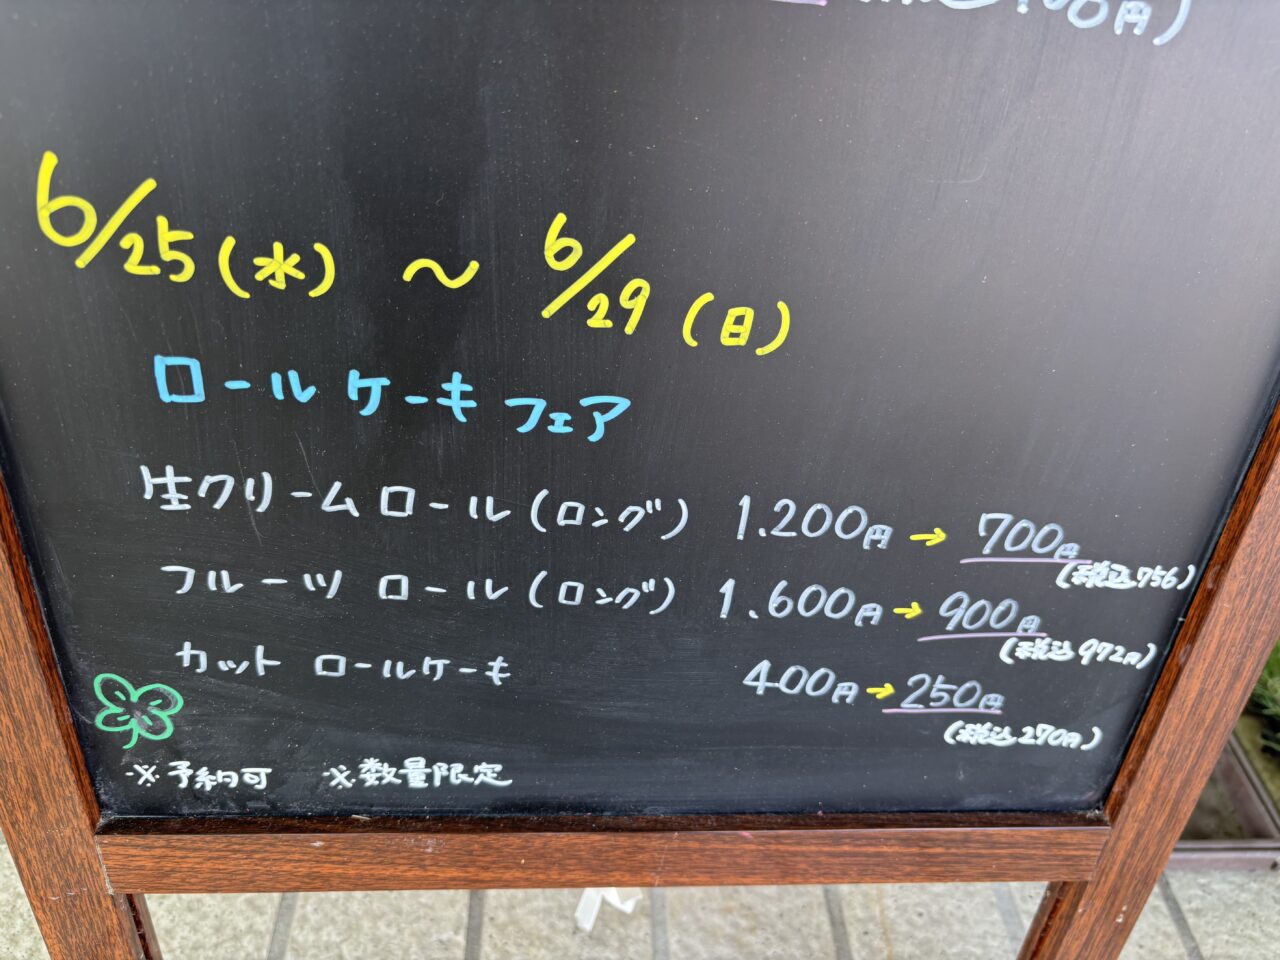 100円)
6/25(水) 〜 6/29(日)
ロールケーキフェア
生クリームロール(ロング) 1.200円→700円
(税込756)
フルーツ ロール(ロング) 1.600円→900円
(税込972円)
カット ロールケーキ 400円→250円
(税込270円)
※予約可 ※数量限定